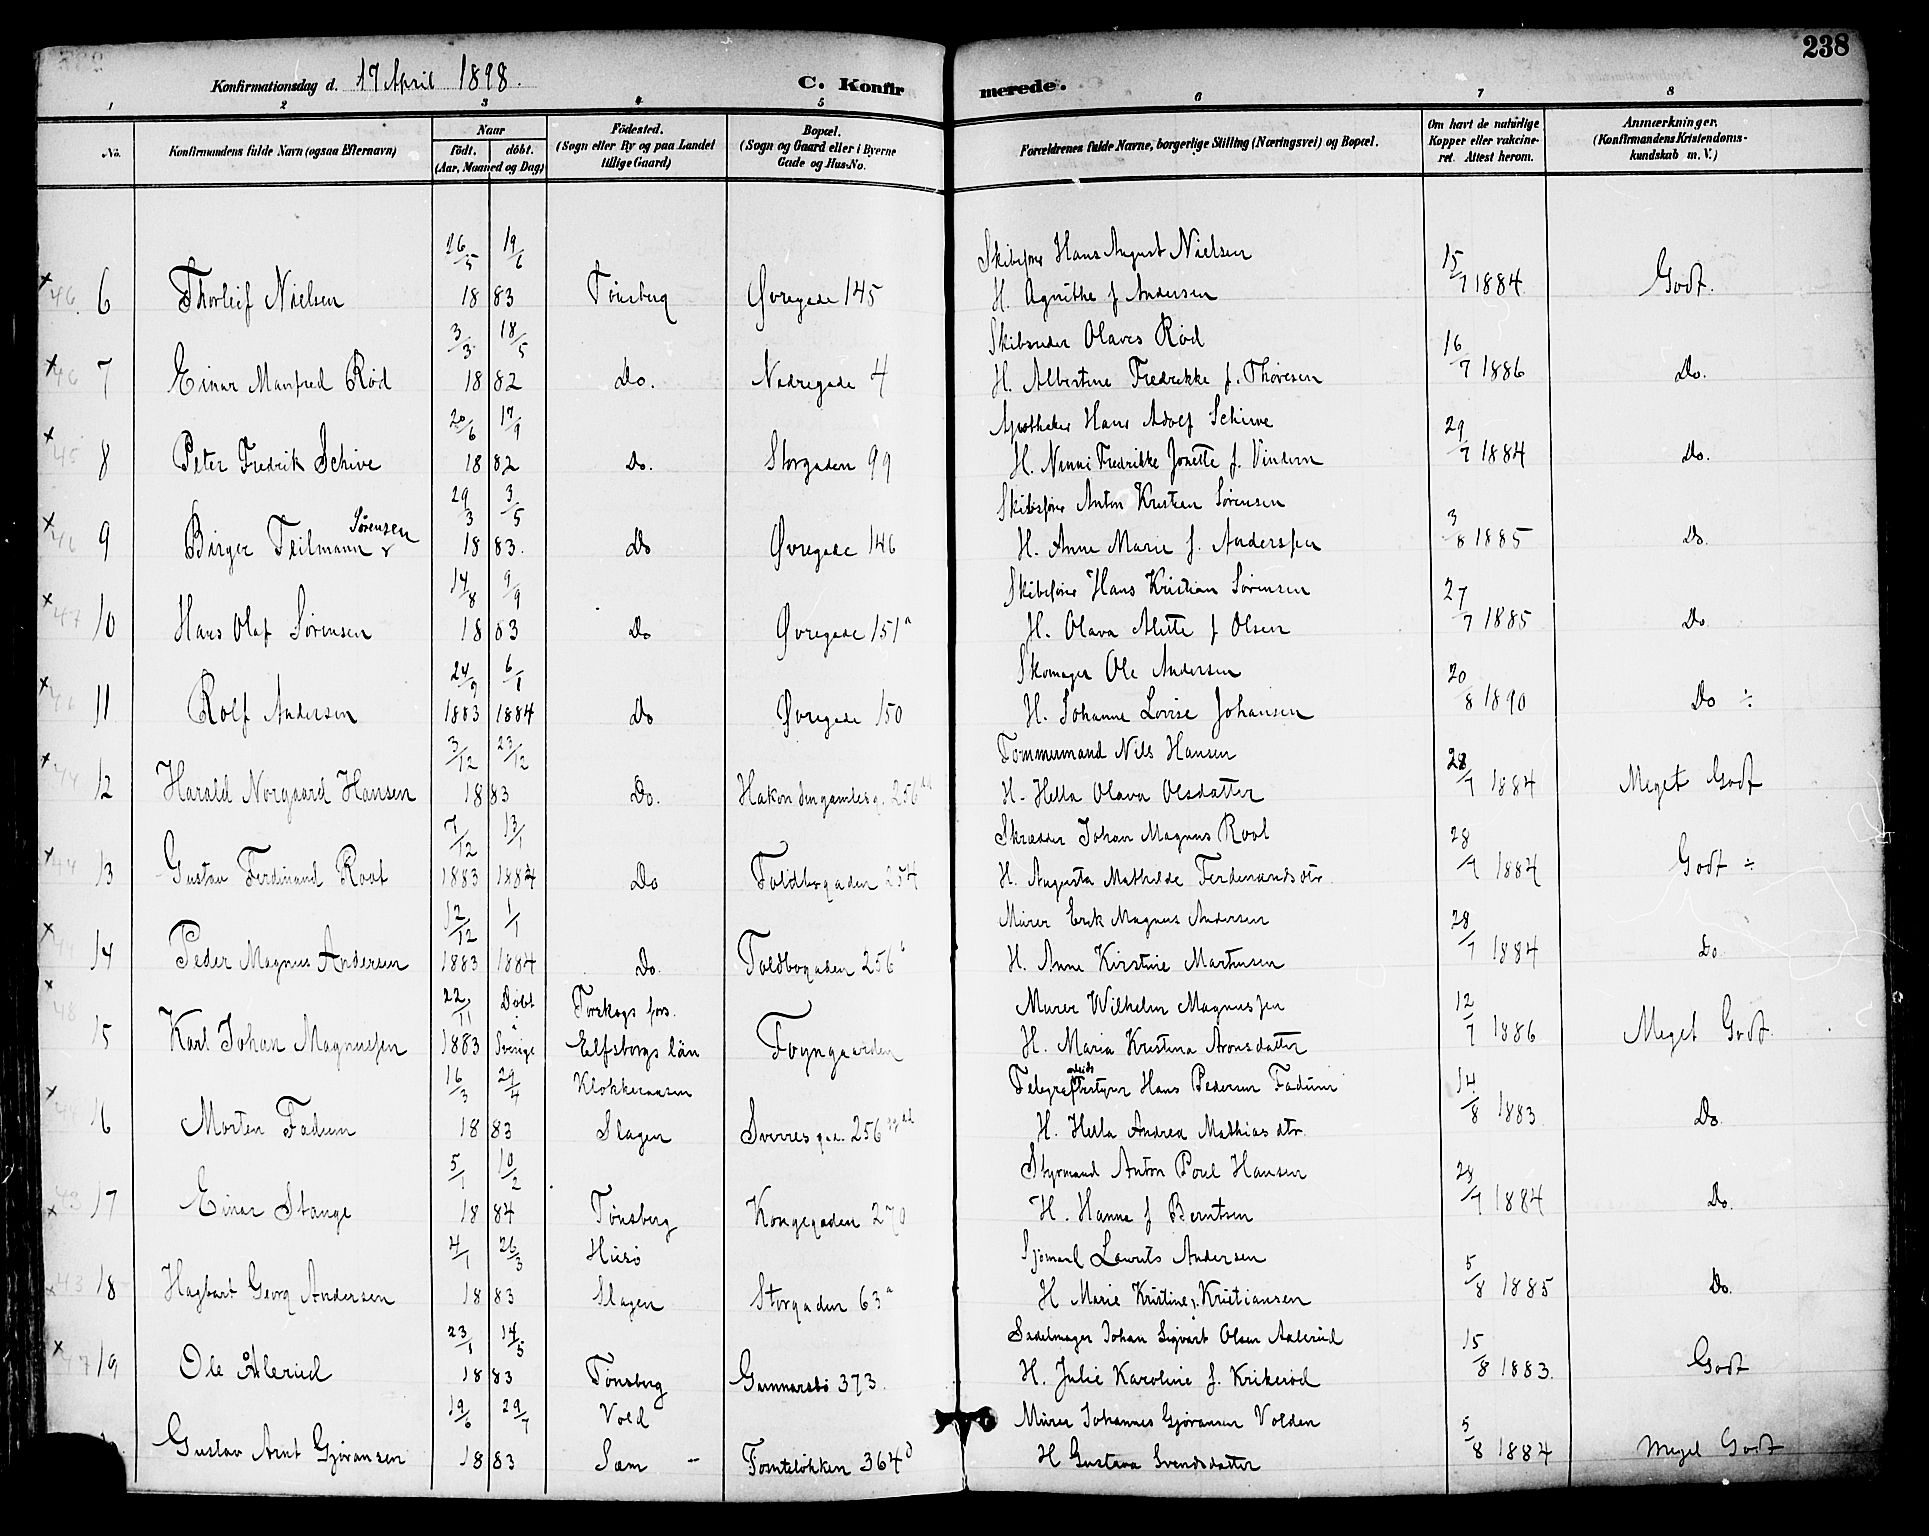 238
Konfirmationsdag d. 17 April 1898.
C. Konfirmerede.
1 2 3 4 5 6 7 8
No.
Konfirmandens fulde Navn (ogsaa Efternavn)
Naar
født. døbt.
(Aar, Maaned og Dag)
Fødested.
(Sogn eller By og paa Landet
tillige Gaard)
Bopæl.
(Sogn og Gaard eller i Byerne
Gade og Hus-No.
Forældrenes fulde Navne, borgerlige Stilling (Næringsvei) og Bopæl.
Om havt de naturlige
Kopper eller vakcineret. Attest herom.
Anmærkninger.
(Konfirmandens Kristendomskundskab m. V.)
26/5 19/6 Skibsfører Hans August Nielsen 15/7 1884
6 Thorleif Nielsen 1883 Tønsberg Øvregade 145 H. Agnithe f Andersen Godt.
3/3 18/5 Skibsreder Olaves Rød
7 Einar Manfred Rød 1882 Do. Nedregade 4 H. Albertine Fredrikke f. Thoresen 16/7 1886 Do.
20/6 17/9 Apotheker Hans Adolf Schive
8 Peter Fredrik Schive 1882 Do. Storgaden 99 H. Nanni Fredrikke Jonette f. Vindern 29/7 1884 Do.
29/3 3/5 Skibsfører Anton Kristian Sørensen
9 Birger Teilmann Sørensen 1883. Do Øvregade 146 H. Anne Marie f. Anderssen 3/8 1885 Do.
14/8 9/9 Skibsfører Hans Kristian Sørensen
10 Hans Olaf Sørensen 1883 Do Øvregade 151a H. Olava Alette f Olsen 27/7 1885 Do
24/9 6/1 Skomager Ole Andersen
11 Rolf Andersen 1883 1884 Do Øvregade 150 H. Johanne Lovise Johansen 20/8 1890 Do ÷
3/12 23/12 Tømmermand Nils Hansen
12 Harald Norgaard Hansen 1883 Do. Hakon dengamlesg. 256 H. Hella Olava Olsdatter 28/7 1884 Meget Godt
7/12 13/1 Skrædder Johan Magnus Root
13 Gustav Ferdinand Root 1883 1884 Do Toldbogaden 254 H. Augusta Mathilde Ferdinandsdtr. 28/7 1884 Godt ÷
12/12 1/1 Murer Erik Magnus Andersen
14 Peder Magnus Andersen 1883 1884 Do. Toldbogaden 256 H. Anne Kirstine Martinsen 28/7 1884 Do
22/11 Døbt Torskogs fors. Murer Wilhelm Magnussen
15 Karl Johan Magnussen 1883 i Sverige Elfsborgs län Foyngaarden H. Maria Kristina Aronsdatter 12/7 1886 Meget Godt.
16/3 29/4 Klokkeraasen Telegrafarbeidsbestyrer Hans Pedersen Fadum
16 Morten Fadum 1883 Slagen Sverresgd. 256 H. Hella Andrea Mathiasdtr. 14/8 1883 Do.
5/1 10/2 Styrmand Anton Poul Hansen
17 Einar Stange 1884 Tønsberg Kongegaden 270 H. Hanna f Berntsen 29/7 1884 Do.
4/1 26/3 Husø Sjømand Laurits Andersen
18 Hagbart Georg Andersen 1883 Slagen Storgaden 63a H Marie Kristine f. Kristiansen 5/8 1885 Do.
23/1 14/5 Sadelmager Johan Sigvart Olsen Aalerud
19 Ole Ålerud 1883 Tønsberg Gunnarsbø 373. H. Julie Karoline f. Krikerød 15/8 1883. Godt
19/6 29/7 Vold Murer Johannes Gjøransen Volden
Gustav Arnt Gjøransen 1883 Sem Tomteløkken 364b H Gustava Svendsdatter 5/8 1884 Meget Godt